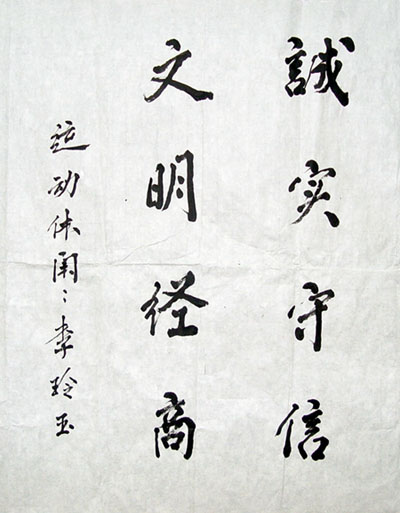 誠实守信
文明经商
运动休闲：李玲玉